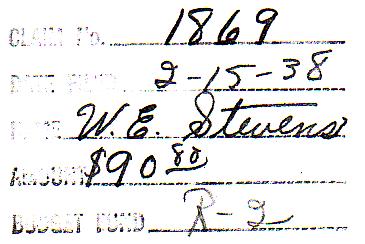 CLAIM No. 1869
DATE FILED 2-15-38
NAME W. E. Stevens
AMOUNT $90 80
BUDGET FUND R-2